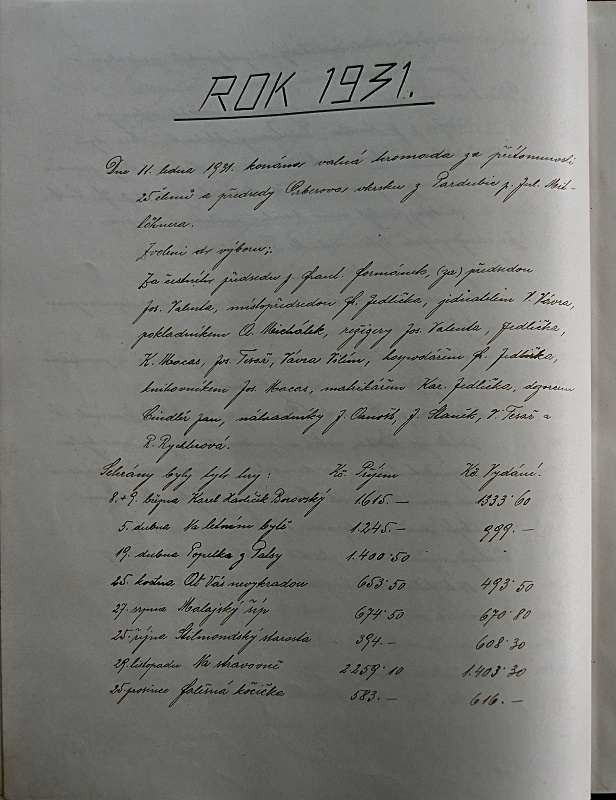 ROK 1931.
Dne 11. ledna 1931. konána valná hromada za přítomnosti
25 členů a předsedy Erberova okrsku z Pardubic p. Jul. Mit-
lehnera.
Zvoleni do výboru:
Za čestného předsedu p. Frant. Formánek, (za) předsedou
Jos. Valenta, místopředsedou Fr. Jedlička, jednatelem V. Vávra,
pokladníkem O. Michálek, regisery Jos. Valenta, Jedlička,
K. Macas, Jos. Tesař, Vávra Vilím, hospodářem Fr. Jedlička,
knihovníkem Jos. Macas, matrikářem Kar. Jedlička, dozorcem
Jan, náhradníky J. J. Staněk, V. Tesař a
R. Rychlnová.
Sehrány byly tyto hry: Kč. Příjem Kč. Vydání.
8. + 9. března Karel Havlíček Borovský 1615.— 1333·60
5. dubna Na letním bytě 1.245.— 999.—
19. dubna Popelka z Patsy 1.400·50
25. května Od Vás nevykradou 653·50 493·50
27. srpna Malajský šíp 674·50 670·80
25. října Stilmondský starosta 394.— 608·30
29. listopadu Na stravovně 2259·10 1.403·30
25. prosince Falešná kočička 583.— 616.—